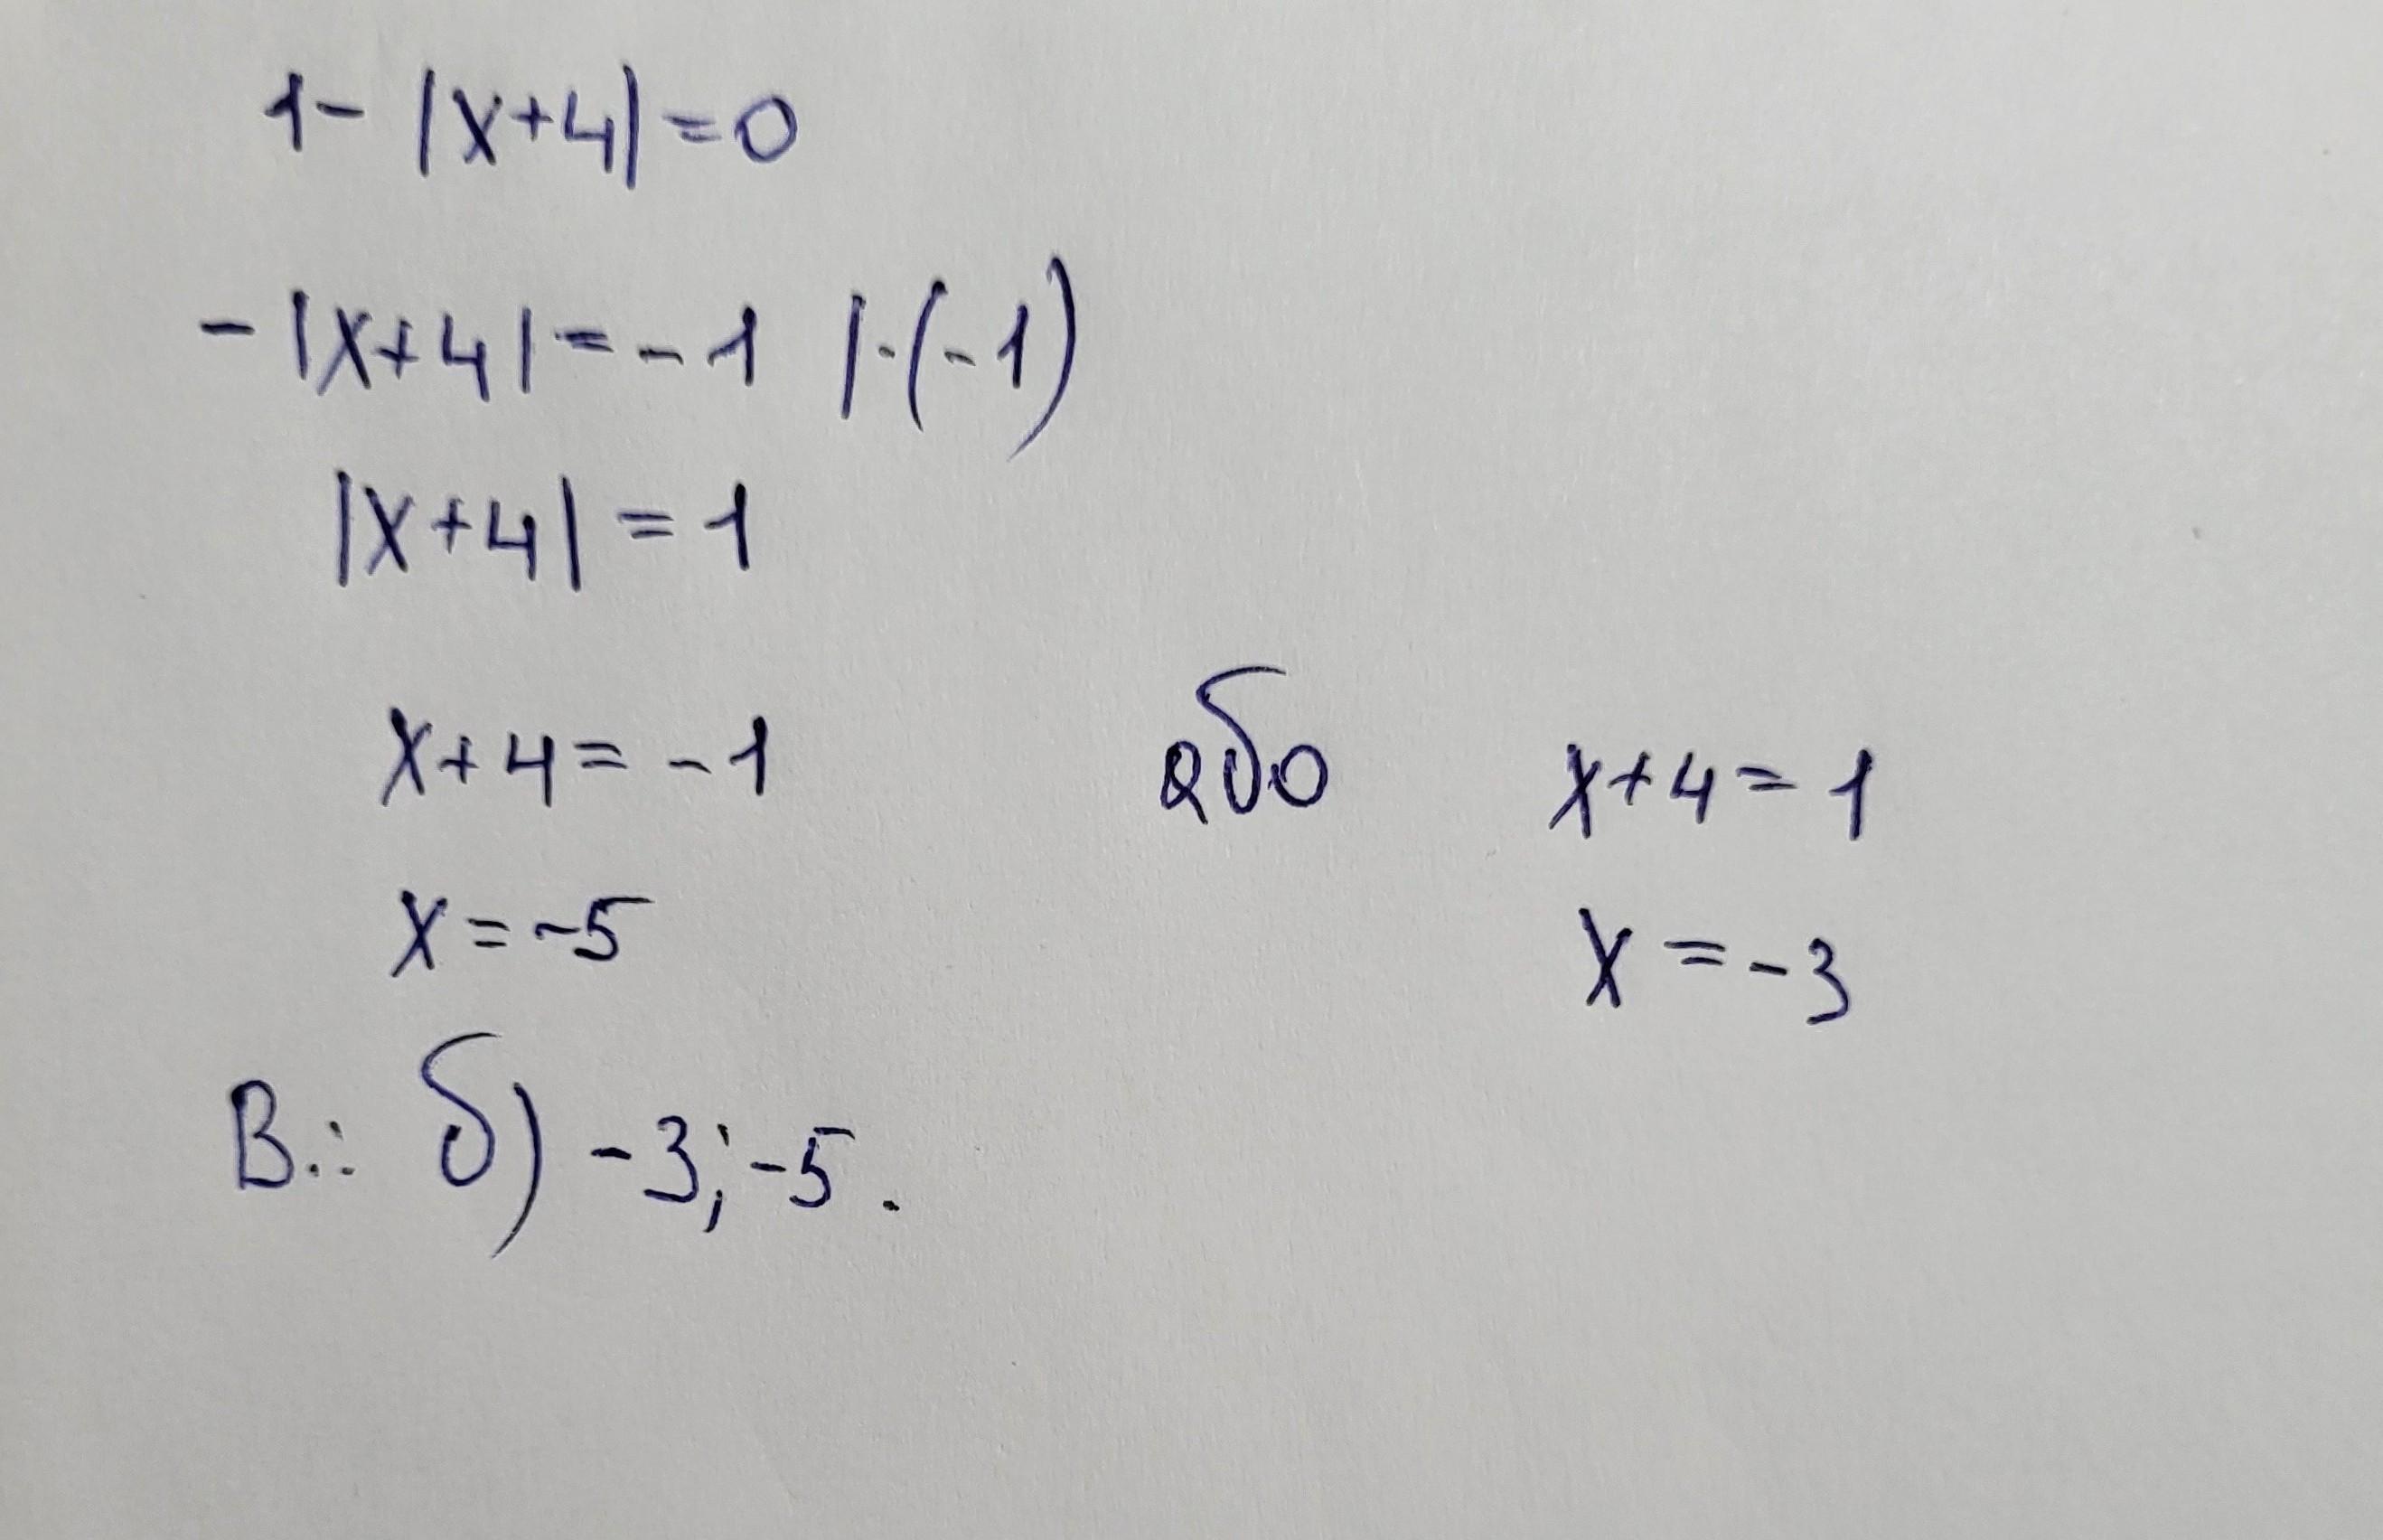 1 - |x+4| = 0
- |x+4| = - 1 | · (-1)
|x+4| = 1
x+4 = - 1 або x+4 = 1
x = -5 x = -3
В.: б) -3; -5.